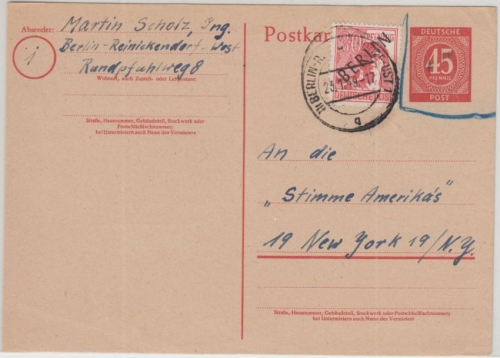 Absender: Martin Scholz, Ing.
Berlin-Reinickendorf-West
Rundpfuhlweg 8
Wohnort, auch Zustell- oder Leitpostamt
Straße, Hausnummer, Gebäudeteil, Stockwerk oder
Postschließfachnummer;
bei Untermietern auch Name des Vermieters
Postkarte
BERLIN
DEUTSCHE
45
PFENNIG
POST
An die
„Stimme Amerika's"
19 New York 19/N.Y.
Straße, Hausnummer, Gebäudeteil, Stockwerk oder Postschließfachnummer;
bei Untermietern auch Name des Vermieters